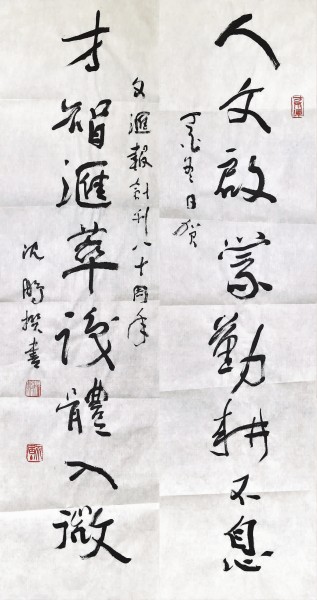 人文啟蒙勤耕不息
丁酉冬日賀
文滙報創刊八十周年
才智滙萃識體入微
沈鵬撰書